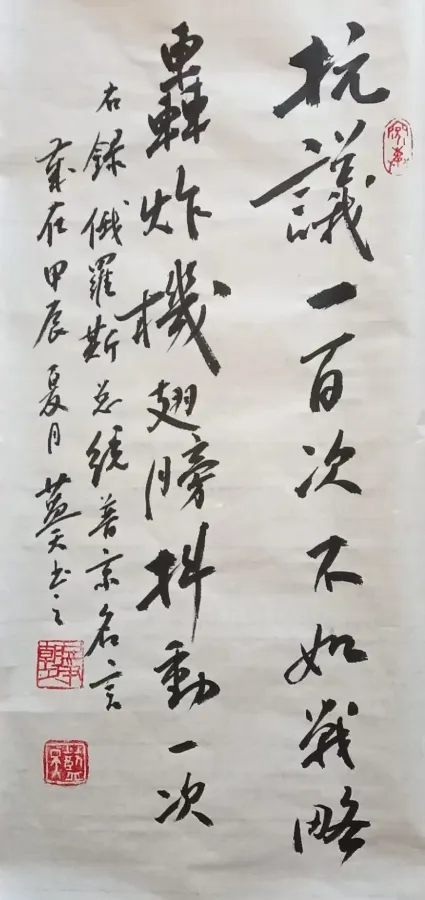 抗議一百次不如戰略
轟炸機翅膀抖動一次
右録俄羅斯总統普京名言
歲在甲辰夏月藍天书之